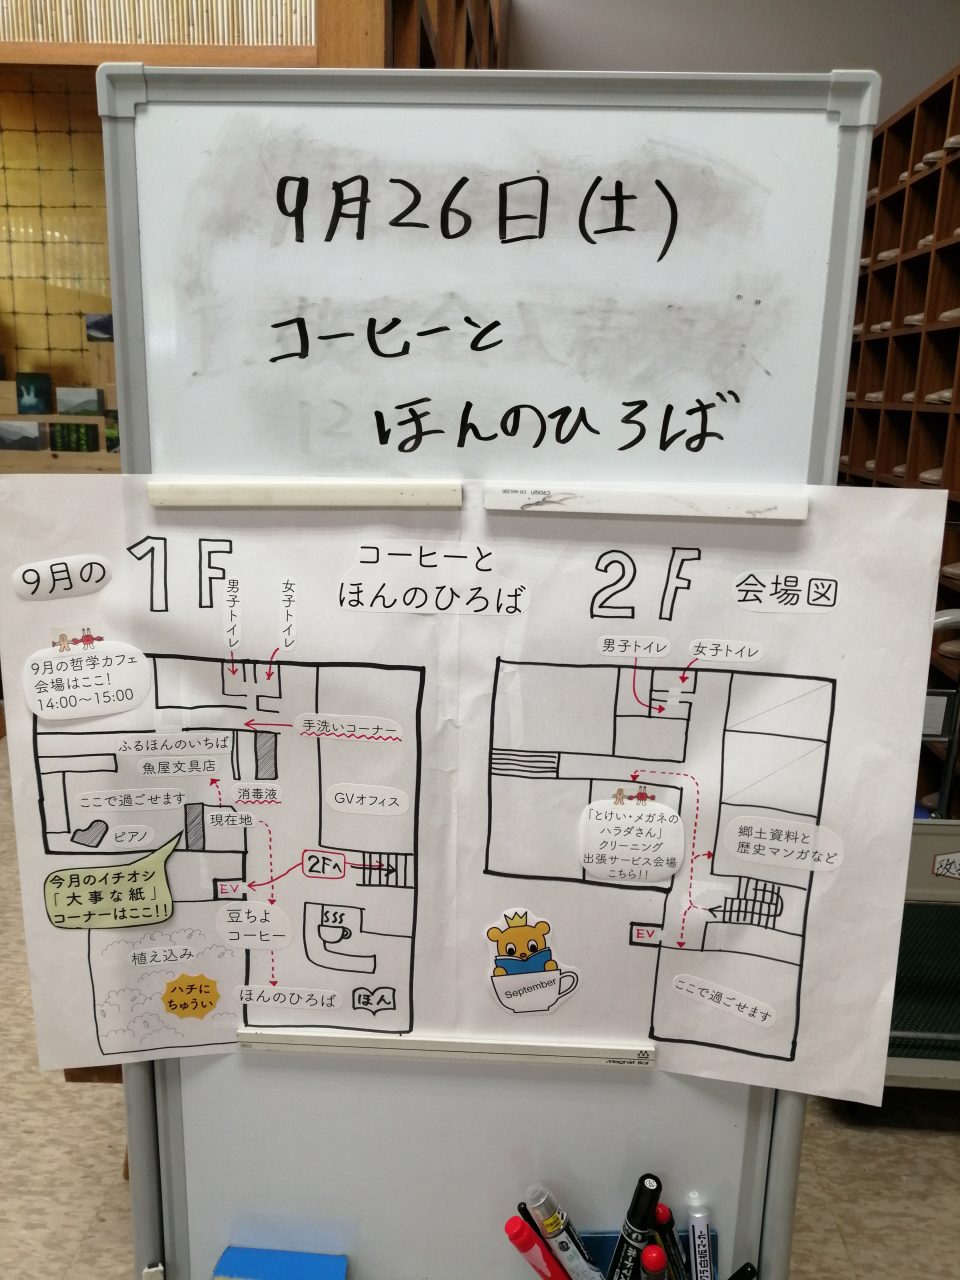 9月26日(土)
コーヒーと
ほんのひろば
CROWN
9月の
1F
コーヒーと
ほんのひろば
2F
会場図
男子トイレ
女子トイレ
9月の哲学カフェ
会場はここ!
14:00〜15:00
手洗いコーナー
ふるほんのいちば
魚屋文具店
消毒液
ここで過ごせます
現在地
GVオフィス
ピアノ
2Fへ
今月のイチオシ
「大事な紙」
コーナーはここ!!
EV
豆ちよ
コーヒー
植え込み
ハチに
ちゅうい
ほんのひろば
ほん
男子トイレ
女子トイレ
「とけい・メガネの
ハラダさん」
クリーニング
出張サービス会場
こちら!!
郷土資料と
歴史マンガなど
EV
September
ここで過ごせます
Magnet Bar